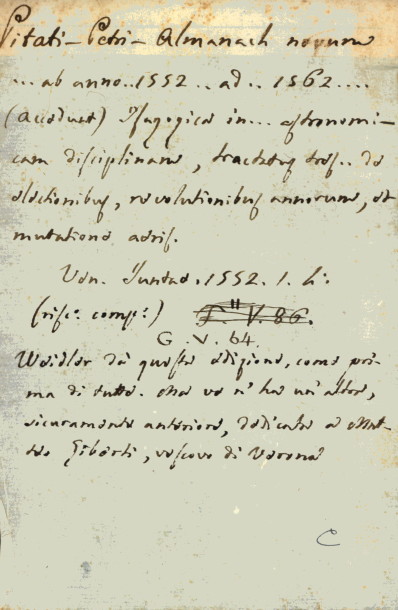 Pitati - Petri - Almanach novum
... ab anno.. 1552 .. ad .. 1562 ....
(accedunt) Isagogica in ... astronomi-
cam disciplinam, tractatus tres .. de
electionibus, revolutionibus annorum, et
mutatione aeris.
Ven. Juntas. 1552. 1. 4.
(risc. comp.)
G. V. 64.
Weidler dà questa edizione, come pri-
ma di tutte. Ma ve n'ha un'altra,
sicuramente anteriore, dedicata a Mat-
teo Giberti, vescovo di Verona
C